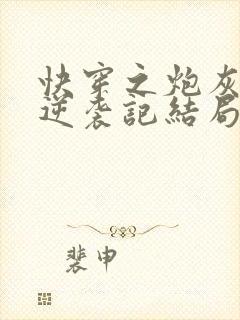 快穿之炮灰
逆袭記結局
裴申